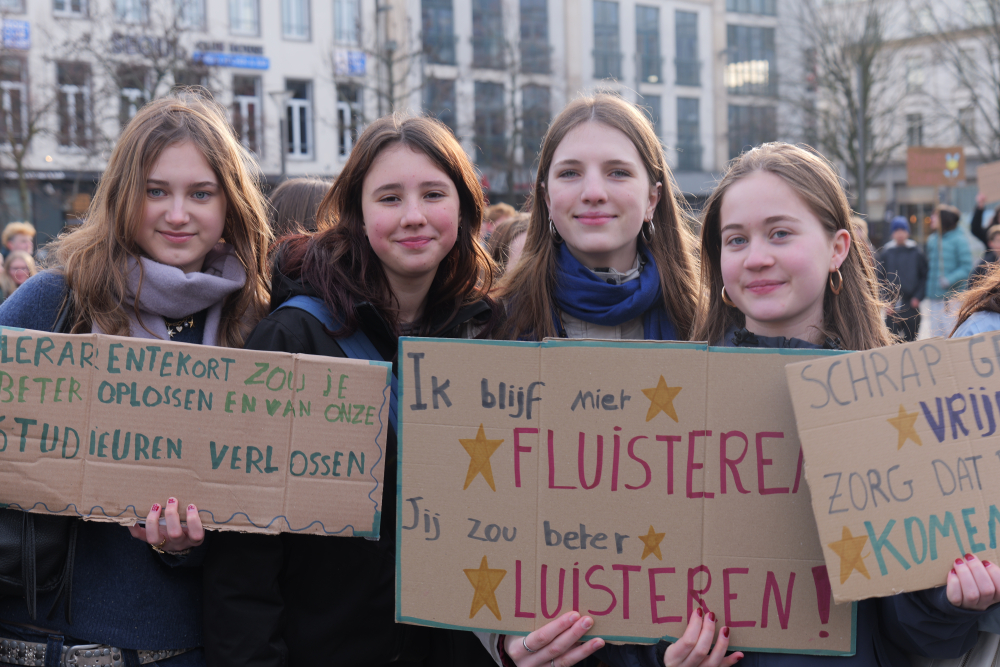 LERARENTEKORT ZOU JE
BETER OPLOSSEN EN VAN ONZE
STUDIEUREN VERLOSSEN
Ik blijf niet
FLUISTEREN
Jij zou beter
LUISTEREN!
SCHRAP GE
VRIJ
ZORG DAT
KOMEN